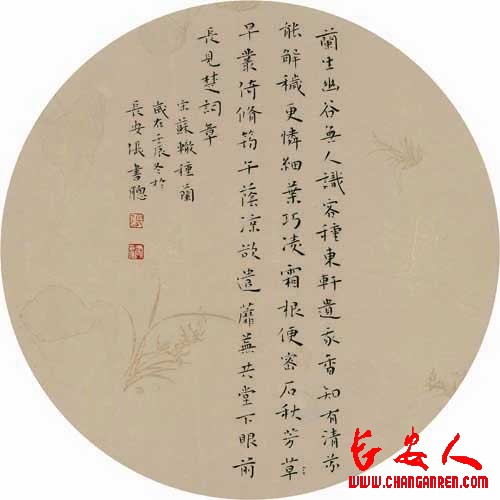 蘭生幽谷無人識客種東軒遺我香知有清芬
能解穢更憐細葉巧淩霜根便密石秋芳草
早叢倚脩筠午蔭涼欲遣蘼蕪共堂下眼前
長見楚詞章
宋蘇轍種蘭
歲在壬辰冬於
長安張書聰
长安人
WWW.CHANGANREN.COM